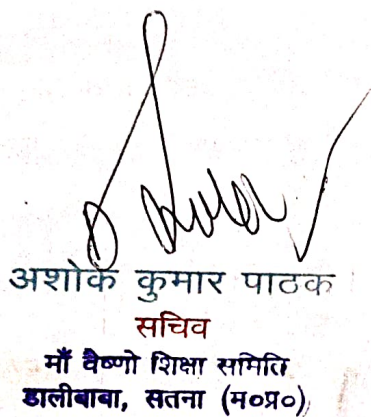 अशोक कुमार पाठक
सचिव
माँ वैष्णो शिक्षा समिति
डालीबाबा, सतना (म०प्र०)